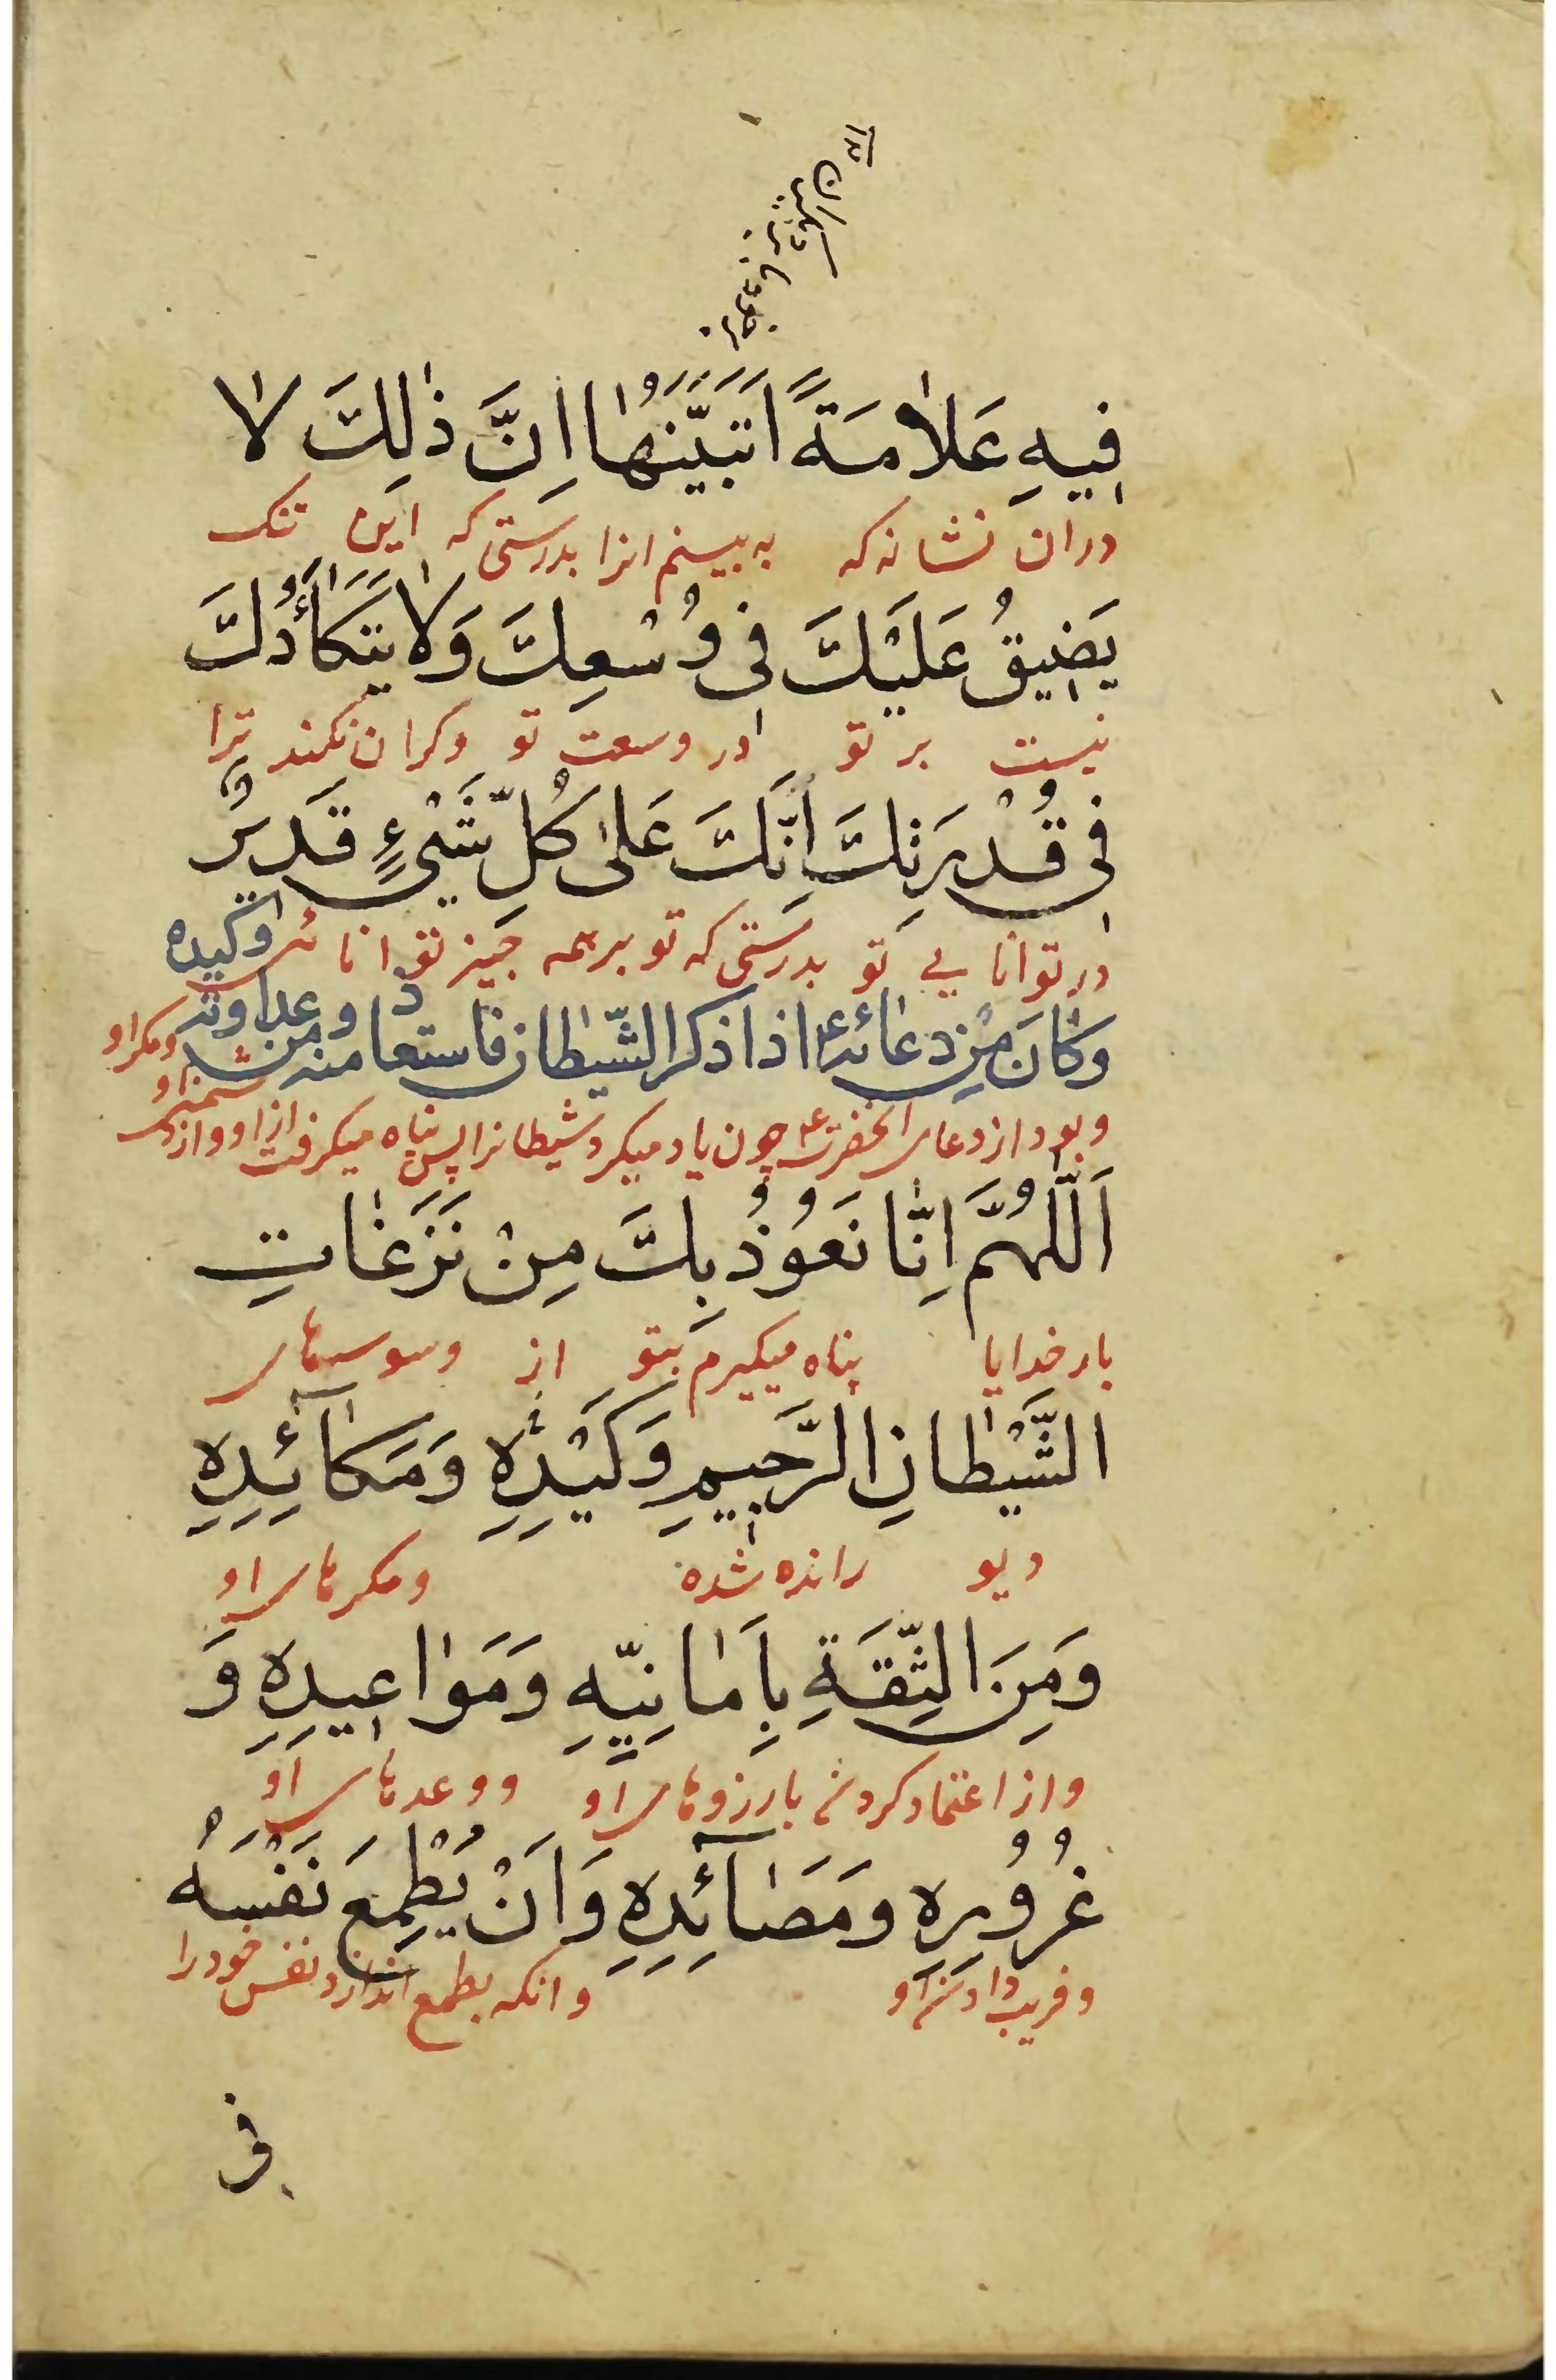 فِيهِ عَلَامَةً اَتَبَيَّنُهَا اِنَّ ذٰلِكَ لَا
دران نشانه كه به بينم انرا بدرستى كه اين تنك
يَضِيقُ عَلَيْكَ فِى وُسْعِكَ وَلَا يَتَكَأَّدُكَ
نيست بر تو در وسعت تو وكران نكند ترا
فِى قُدْرَتِكَ اِنَّكَ عَلىٰ كُلِّ شَىْءٍ قَدِيرٌ
در توانايى تو بدرستى كه تو برهمه چيز توانائى
وكان من دعائه ع اذا ذكر الشّيطان فاستعاذ منه ومن عداوته وكيده
وبود از دعاى انحضرت ع چون ياد ميكرد شيطانرا پس پناه ميكرفت ازاو واز دشمنى او ومكر او
اَللّٰهُمَّ اِنَّا نَعُوذُ بِكَ مِنْ نَزَغَاتِ
بار خدايا پناه ميكيرم بتو از وسوسهاى
الشَّيْطَانِ الرَّجِيمِ وَكَيْدِهِ وَمَكَآئِدِهِ
ديو رانده شده ومكرهاى او
وَمِنَ الثِّقَةِ بِاَمَانِيِّهِ وَمَوَاعِيدِهِ وَ
واز اعتماد كردن بارزوهاى او ووعدهاى او
غُرُورِهِ وَمَصَآئِدِهِ وَاَنْ يُطْمِعَ نَفْسَهُ
وفريب دادن او وانكه بطمع اندازد نفس خود را
فى